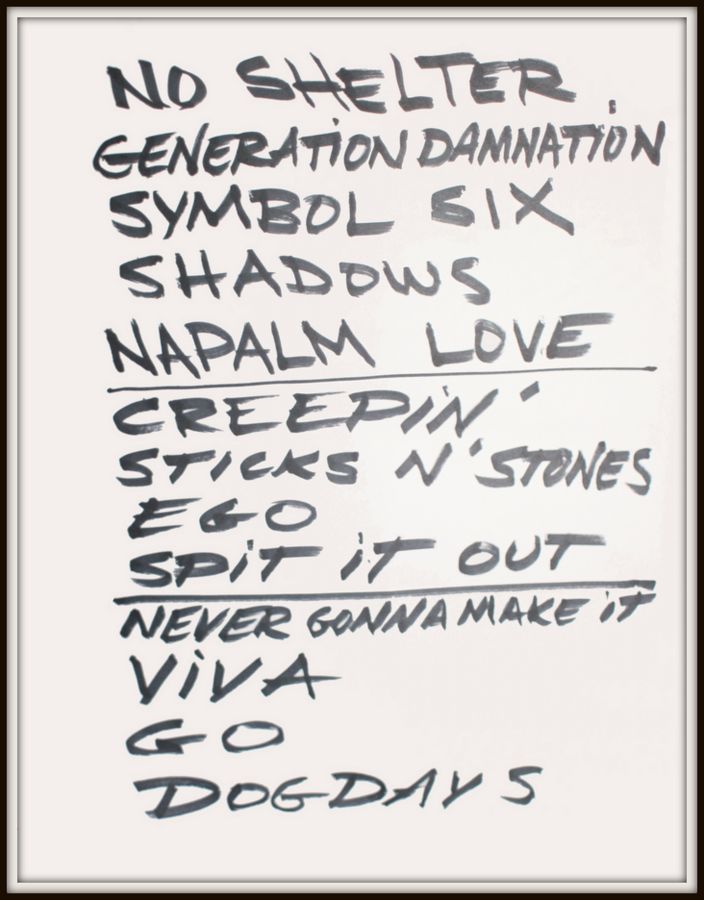 NO SHELTER
GENERATION DAMNATION
SYMBOL SIX
SHADOWS
NAPALM LOVE
CREEPIN'
STICKS N' STONES
EGO
SPIT IT OUT
NEVER GONNA MAKE IT
VIVA
GO
DOGDAYS